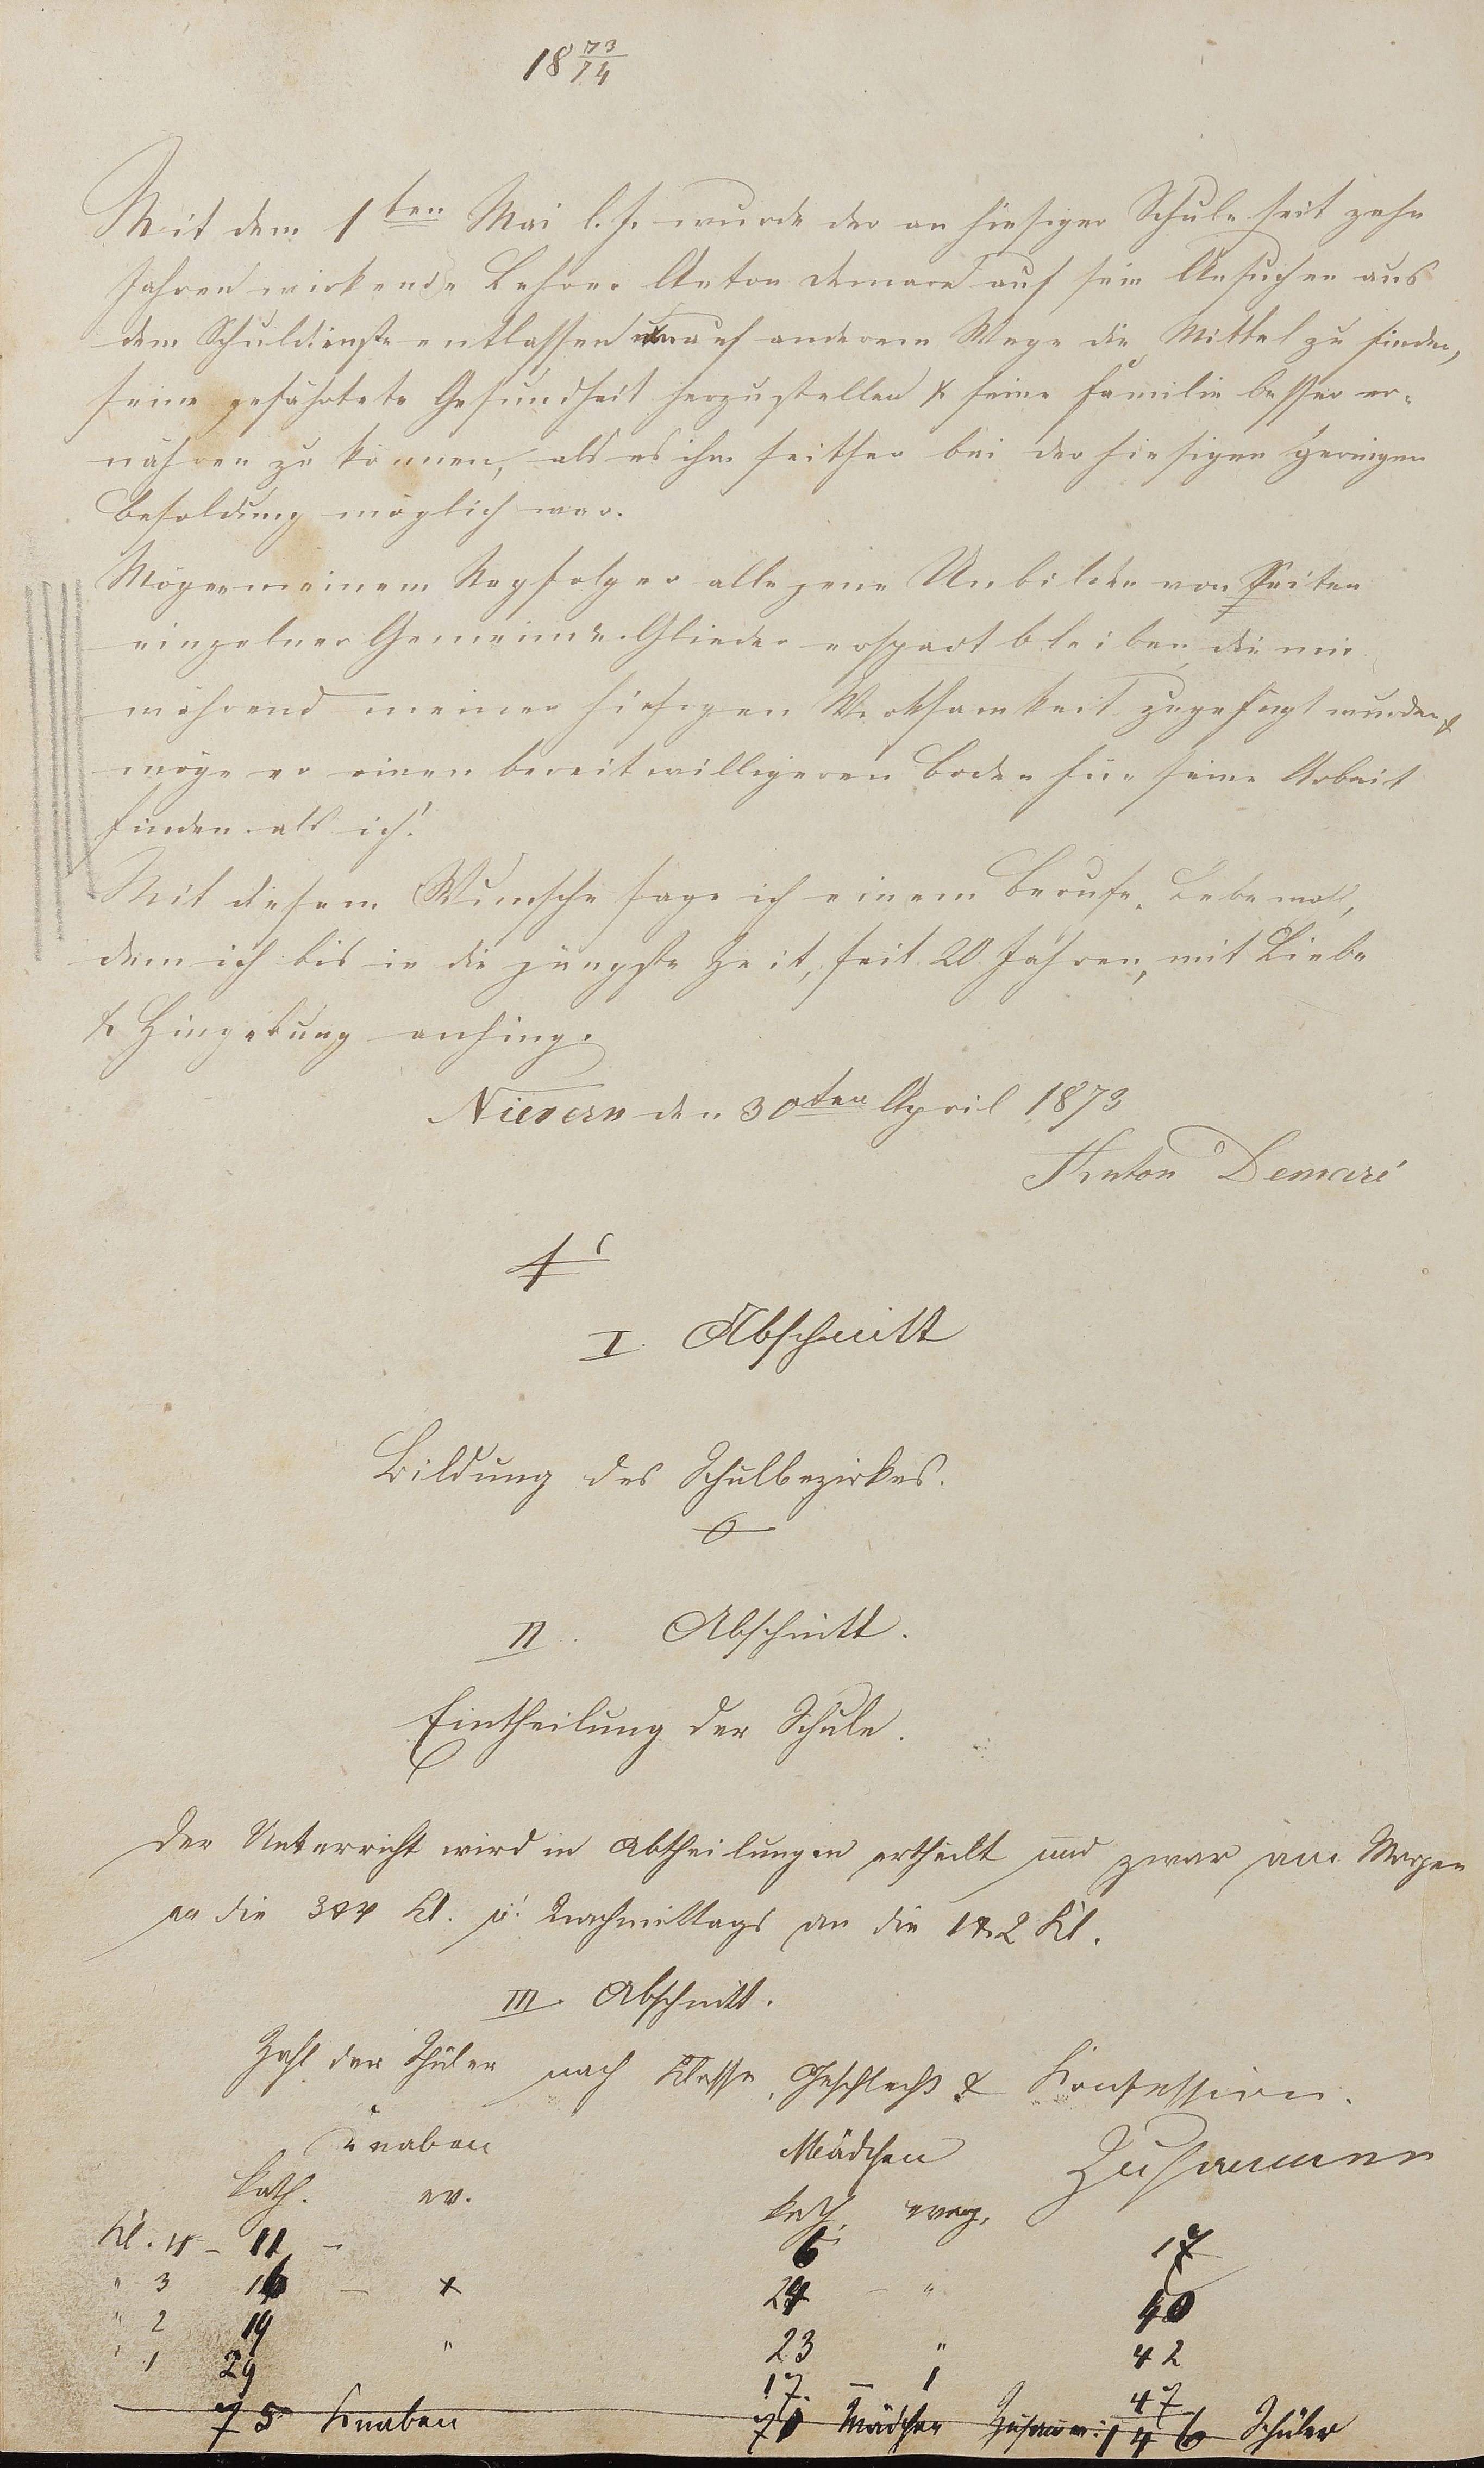 18 73/74
Mit dem 1ten Mai l. J. wurde der an hiesiger Schule seit zehn
Jahren wirkende Lehrer Anton Demaré auf sein Ansuchen aus
dem Schuldienste entlassen um auf anderem Wege die Mittel zu finden,
seine gefährtete Gesundheit herzustellen & seine Familie besser er-
nähren zu können, als es ihm seither bei der hiesigen geringen
Besoldung möglich war.
Mögen meinem Nachfolger alle jene Unbilden von Seiten
einzelner Gemeinde-Glieder erspart bleiben, die mir
während meiner hiesigen Wirksamkeit zugefügt wurden &
möge er einen bereitwilligeren Boden für seine Arbeit
finden als ich!
Mit diesem Wunsche sage ich einem Berufe Lebewohl,
dem ich bis in die jüngste Zeit, seit 20 Jahren, mit Liebe
& Hingebung anhing.
Nievern den 30ten April 1873
Anton Demaré
I. Abschnitt
Bildung des Schulbezirkes.
II. Abschnitt.
Eintheilung der Schule.
Der Unterricht wird in Abtheilungen ertheilt und zwar am Morgen
an die 3 & 4 Kl. u. Nachmittags an die 1 & 2 Kl.
III. Abschnitt.
Zahl der Schüler nach Klasse, Geschlecht & Konfession.
Knaben Mädchen Zusammen
kath. ev. kath. evag.
Kl. 4 - 11 - 6 17
" 3 16 - x 24 - " 40
" 2 19 " 23 " 42
" 1 29 17. - 1 47
75 Knaben 71 Mädchen Zusamm: 146 Schüler